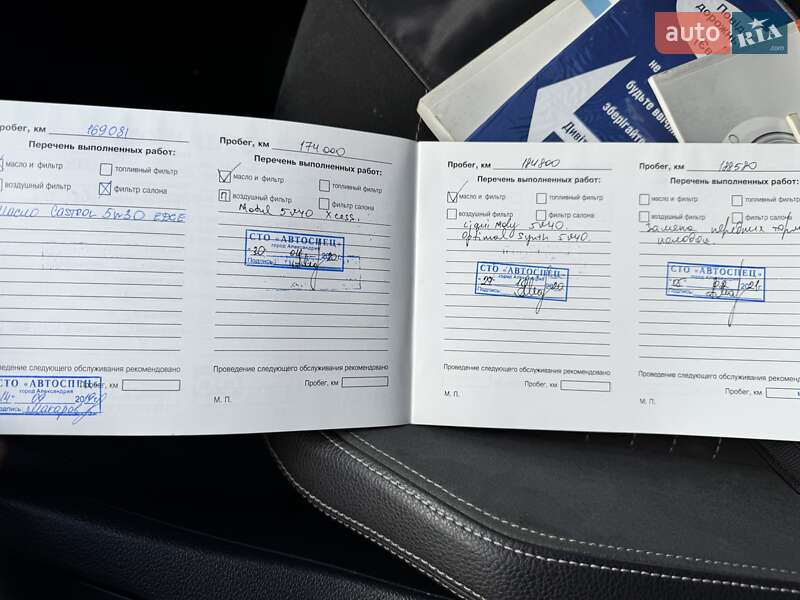 auto RIA .com
не
будьте
зберігайте
робег, км 169081
Перечень выполненных работ:
масло и фильтр
топливный фильтр
воздушный фильтр
фильтр салона
масло Castrol 5w30 EDGE
СТО «АВТОСПЕЦ»
город Александрия
Подпись
Проведение следующего обслуживания рекомендовано
Пробег, км
Пробег, км 174000
Перечень выполненных работ:
масло и фильтр
топливный фильтр
воздушный фильтр
фильтр салона
Motul 5w40 Xcess.
СТО «АВТОСПЕЦ»
город Александрия
Подпись
Проведение следующего обслуживания рекомендовано
Пробег, км
М. П.
Пробег, км 184800
Перечень выполненных работ:
масло и фильтр
топливный фильтр
воздушный фильтр
фильтр салона
Liqui Moly 5w40
Optimal Synth 5w40.
СТО «АВТОСПЕЦ»
город Александрия
Подпись
Проведение следующего обслуживания рекомендовано
Пробег, км
М. П.
Пробег, км
Перечень выполненных работ:
масло и фильтр
топливный фильтр
воздушный фильтр
фильтр салона
Замена передних торм
колодок.
СТО «АВТОСПЕЦ»
город Александрия
Подпись
Проведение следующего обслуживания рекомендовано
Пробег, км
М. П.